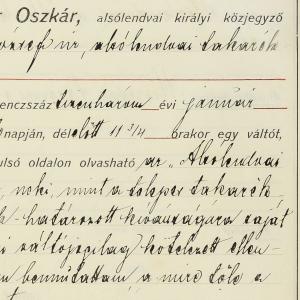 r Oszkár, alsólendvai királyi közjegyző
józsef úr, alsólendvai takarék
enczszáz tizenhárom évi január
napján, délelőtt 11 3/4 órakor egy váltót,
ulsó oldalon olvasható, az „Alsólendvai
neki, mint a telepes takarék
k határozott kívánságára saját
i váltójogilag kötelezett ellen-
n bemutattam a mire tőle a